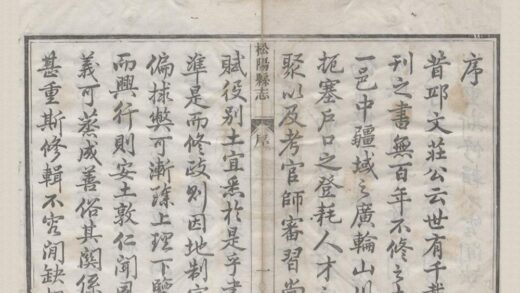 序
昔邱文莊公云世有千載
刊之書無百年不修之
一邑中疆域之廣輪山川
扼塞戶口之登耗人才
聚以及考官師審習尚
松陽縣志
序
一
賦役別土宜悉於是乎
準是而修政則因地制
偏捄弊可漸除上理下
而興行則安土敦仁聞
義可蒸成善俗其関係
甚重斯修輯不容閒缺